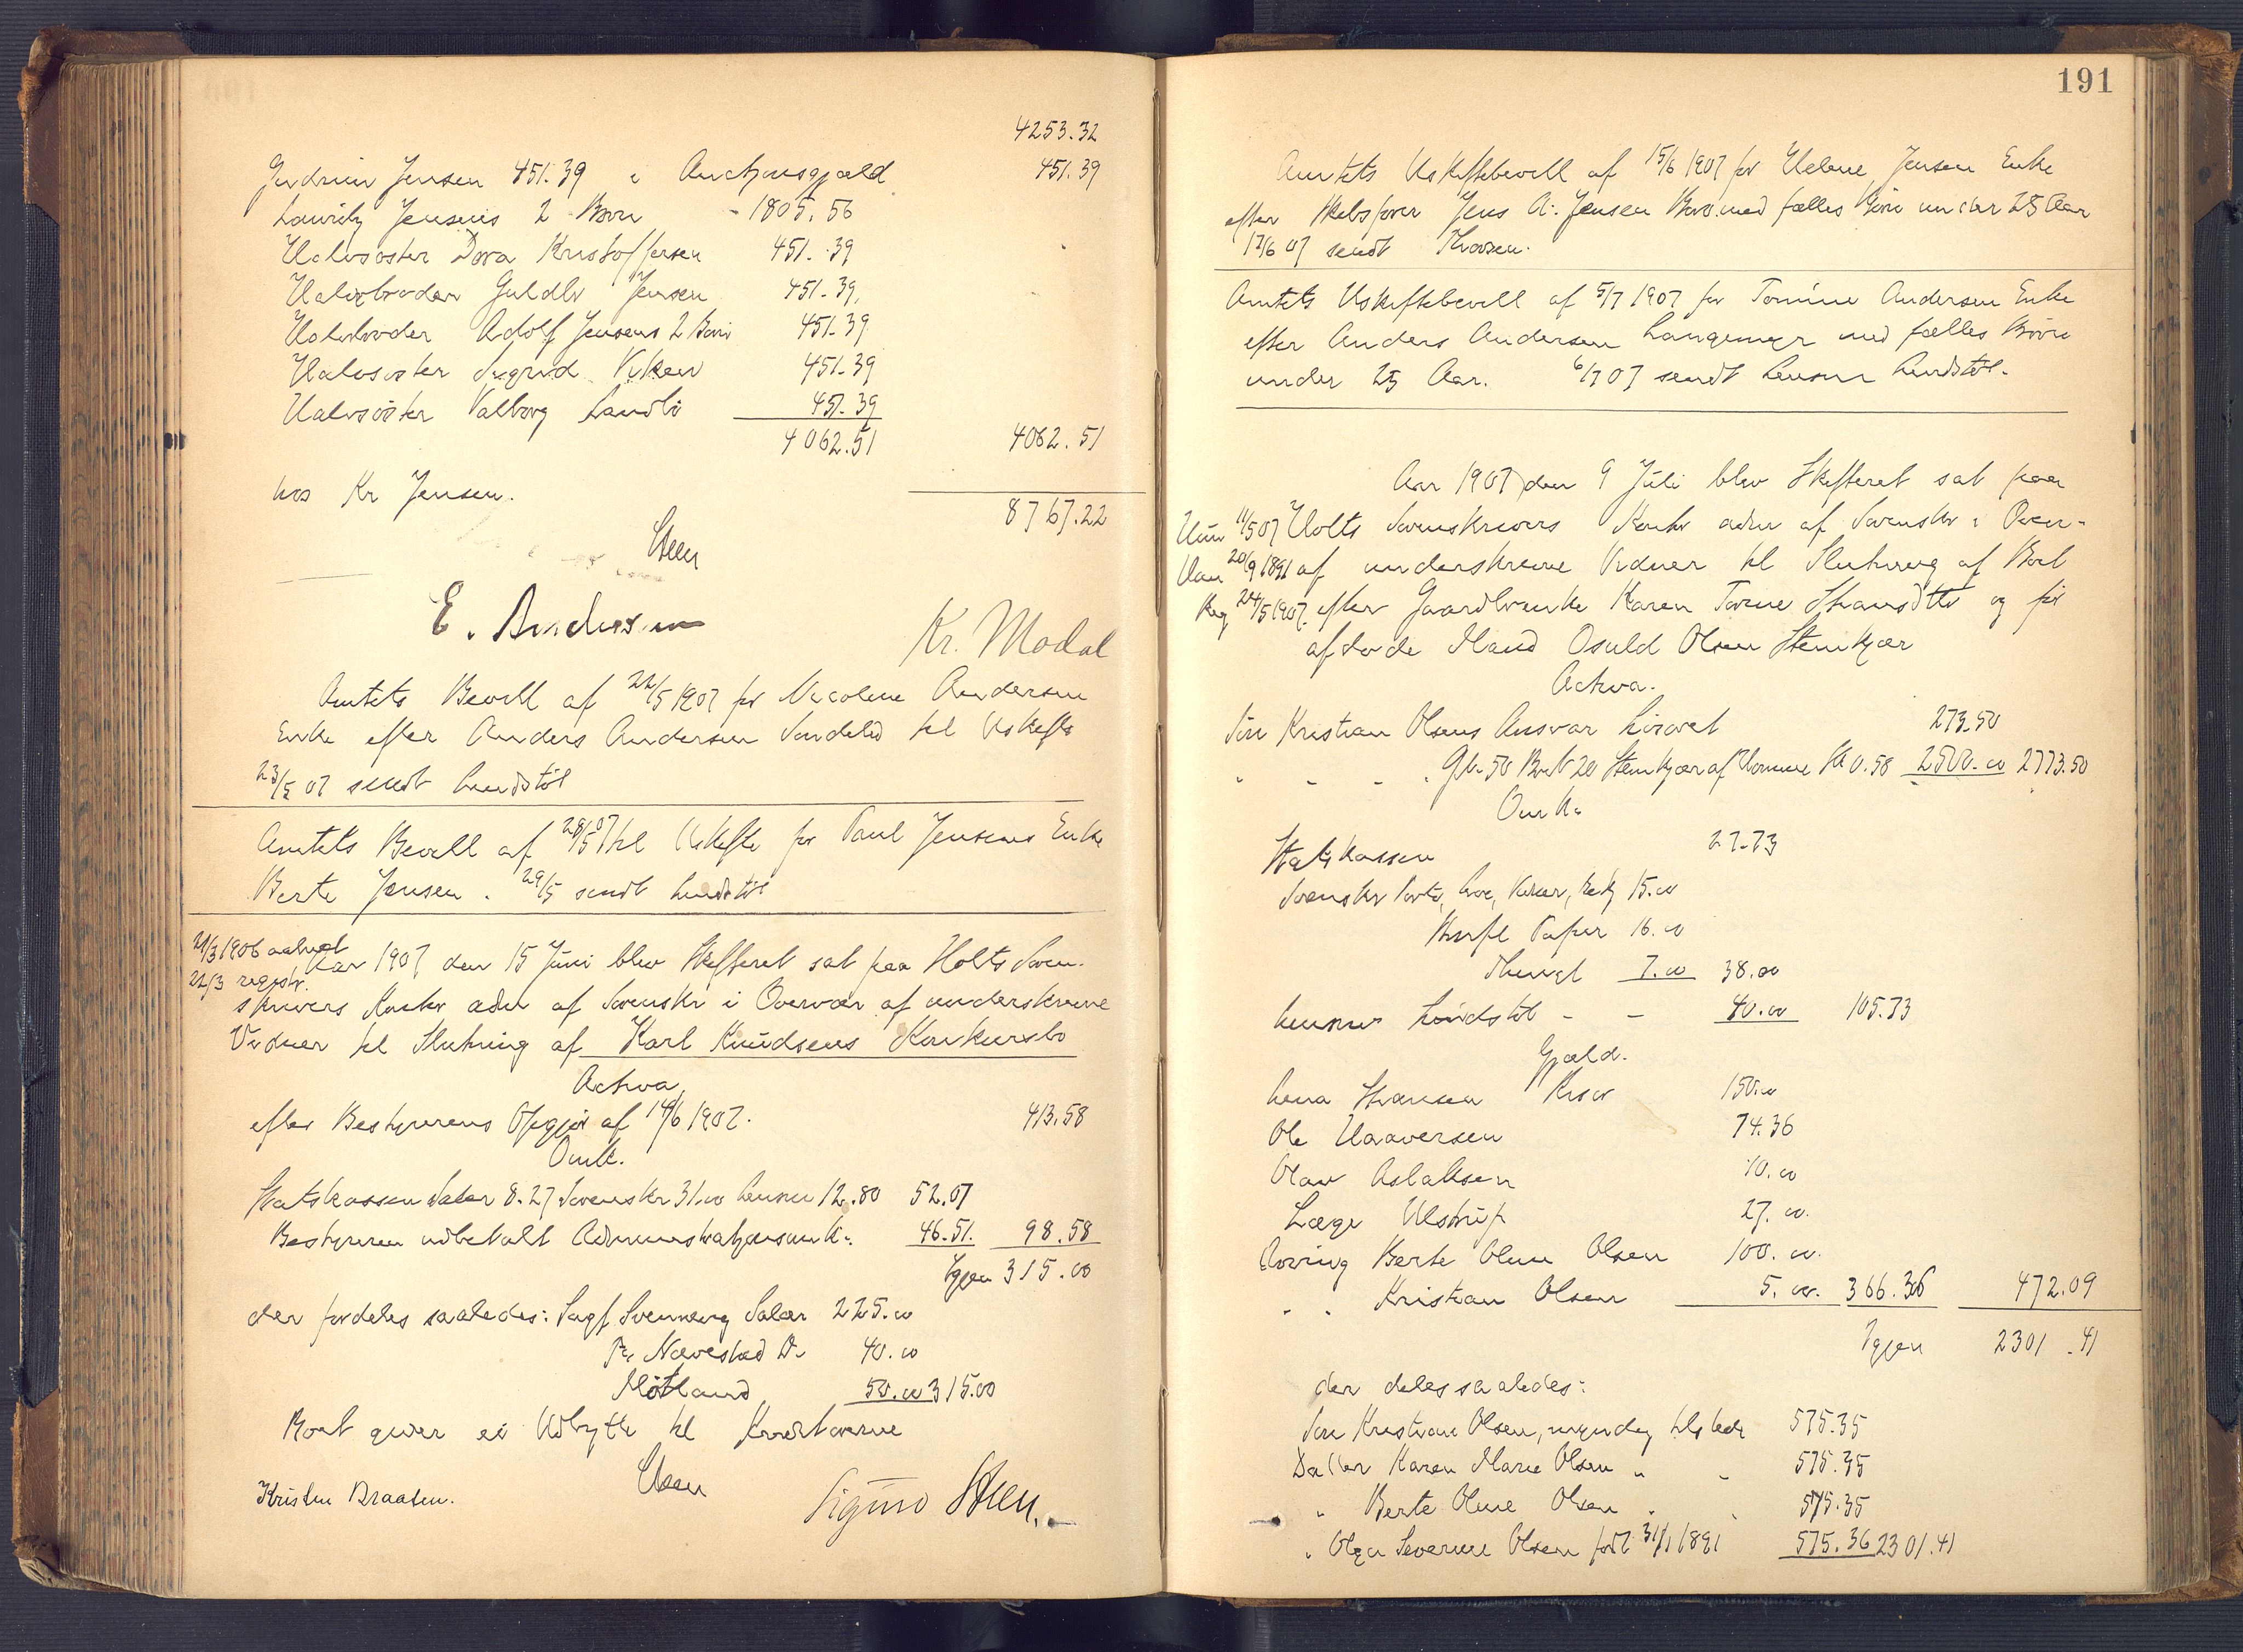 4253.32
Gudrun Jensen 451.39 i Auctionsgjæld 451.39
Lauritz Jensens 2 Børn - 1805.56
Halvsøster Dora Kristoffersen 451.39
Halvbroder Guldbr Jensen 451.39
Halvbroder Adolf Jensens 2 Børn 451.39
Halvsøster Sigrid Viken 451.39
Halvsøster Valborg Landbö 451.39
4062.51 4062.51
hos Kr Jensen.
8767.22
Steen
E. Andersen
Kr. Modal
Amtets Bevill af 22/5 1907 for Nicoline Andersen
Enke efter Anders Andersen Søndeled til Uskifte
23/5 07 sendt Lundstöl
Amtets Bevill af 28/5 07 til Uskifte for Paul Jensens Enke
Berte Jensen. 29/5 sendt Lundstöl
21/3 1906 aabnet
22/3 registr.
Aar 1907 den 15 Juni blev Skifteret sat paa Holts Soren-
skrivers Kontor adm af Sorenskr i Overvær af underskrevne
Vidner til Slutning af Karl Knudsens Konkursbo
Activa
efter Bestyrerens Opgjør af 14/6 1907. 413.58
Omk.
Statskassen Salær 8.27 Sorenskr 31.00 Lensm 12.80 52.07
Bestyreren udbetalt Administrationsomk. 46.51. 98.58
Igjen 315.00
der fordeles saaledes: Sagf Svenneng Salær 225.00
P. Nævestad D. 40.00
Mötland 50.00 315.00
Boet giver ei Udbytte til Kreditorerne
Steen
Kristen Braaten.
Sigurd Steen.
191
Amtets Uskiftebevill af 15/6 1907 for Helene Jensen Enke
efter Skibsfører Jens A. Jensen Borø med fælles Børn under 25 Aar
17/6 07 sendt Thorsen.
Amtets Uskiftebevill af 5/7 1907 for Tomine Andersen Enke
efter Anders Andersen Langemyr med fælles Børn
under 25 Aar. 6/7 07 sendt Lensm Lundstöl.
Aar 1907 den 9 Juli blev Skifteret sat paa
Hun 11/5 07 Holts Sorenskrivers Kontor adm af Sorenskr i Over-
Han 20/9 1891 af underskrevne Vidner til Slutning af Boet
Reg 24/5 1907. efter Gaardbrenke Karen Torine Stiansdtr og før
afdøde Mand Osuld Olsen Stenkjær
Activa.
Søn Kristian Olsens Ansvar Lösøret 273.50
" - - . Gbr 50 Brb 20 Stenkjær af Homme Sk 0.58 2500.00 2773.50
Omk.
Statskassen 27.73
Sorenskr Porto, Lov, Vidner, Bekj 15.00
Papir 16.00
Thingl 7.00 38.00
Lensm Lundstöl - - 40.00 105.73
Gjæld.
Lena Thorsen Risør 150.00
Ole Haaversen 74.36
Olav Aslaksen 10.00
Læge Ulstrup 27.00.
Toring Berte Oline Olsen 100.00.
" . Kristian Olsen 5.00. 366.36 472.09
Igjen 2301.41
der deles saaledes:
Søn Kristian Olsen, myndig tilstede 575.35
Datter Karen Marie Olsen " - 575.35
" Berte Oline Olsen . . 575.35
" Olga Severine Olsen født 31/1 1891 575.36 2301.41